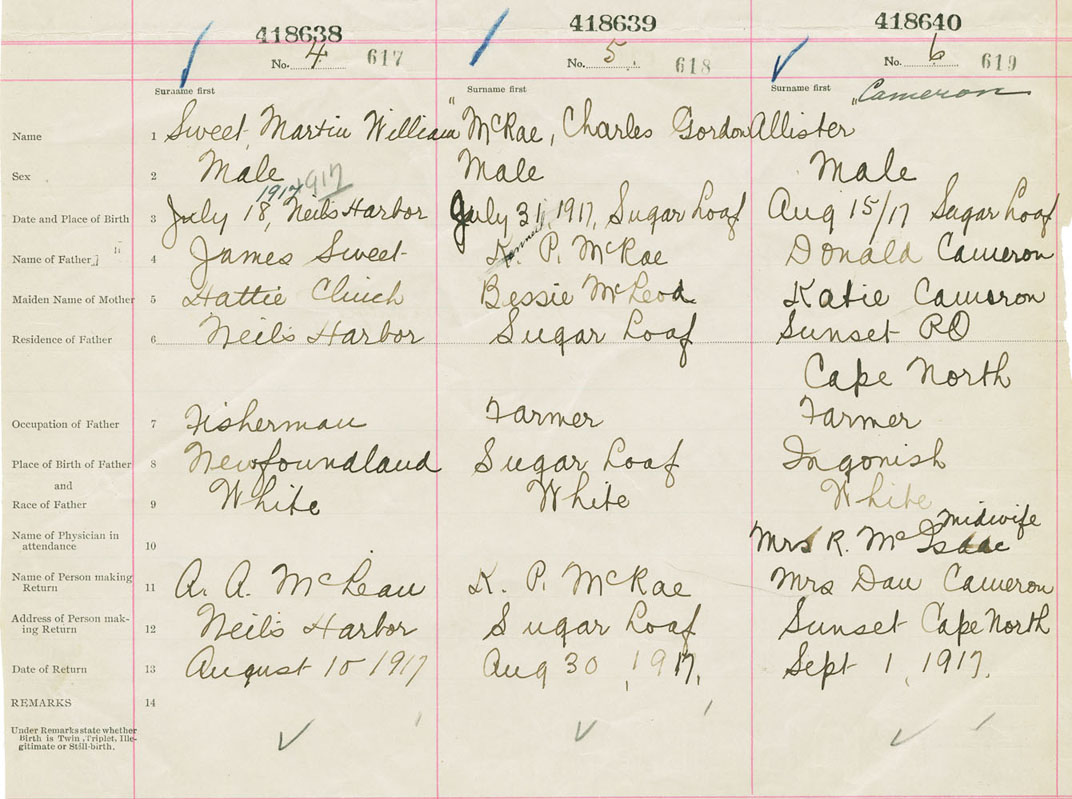 418638 418639 418640
No. 4 617 No. 5 618 No. 6 619
Surname first Surname first Surname first "Cameron
Name 1 Sweet, Martin William " McRae, Charles Gordon Allister
Sex 2 Male Male Male
1917 1917
Date and Place of Birth 3 July 18, Neils Harbor July 31, 1917, Sugar Loaf Aug 15/17 Sugar Loaf
Name of Father 4 James Sweet K. P. McRae Donald Cameron
Maiden Name of Mother 5 Hattie Clinch Bessie McLeod Katie Cameron
Residence of Father 6 Neils Harbor Sugar Loaf Sunset PO
Cape North
Occupation of Father 7 Fisherman Farmer Farmer
Place of Birth of Father 8 Newfoundland Sugar Loaf Ingonish
and
Race of Father 9 White White White
Name of Physician in midwife
attendance 10 Mrs R. McIsaac
Name of Person making Return 11 A. A. McLean K. P. McRae Mrs Dan Cameron
Address of Person making Return 12 Neils Harbor Sugar Loaf Sunset Cape North
Date of Return 13 August 10 1917 Aug 30, 1917, Sept 1, 1917.
REMARKS 14
Under Remarks state whether
Birth is Twin, Triplet, Ille-
gitimate or Still-birth.